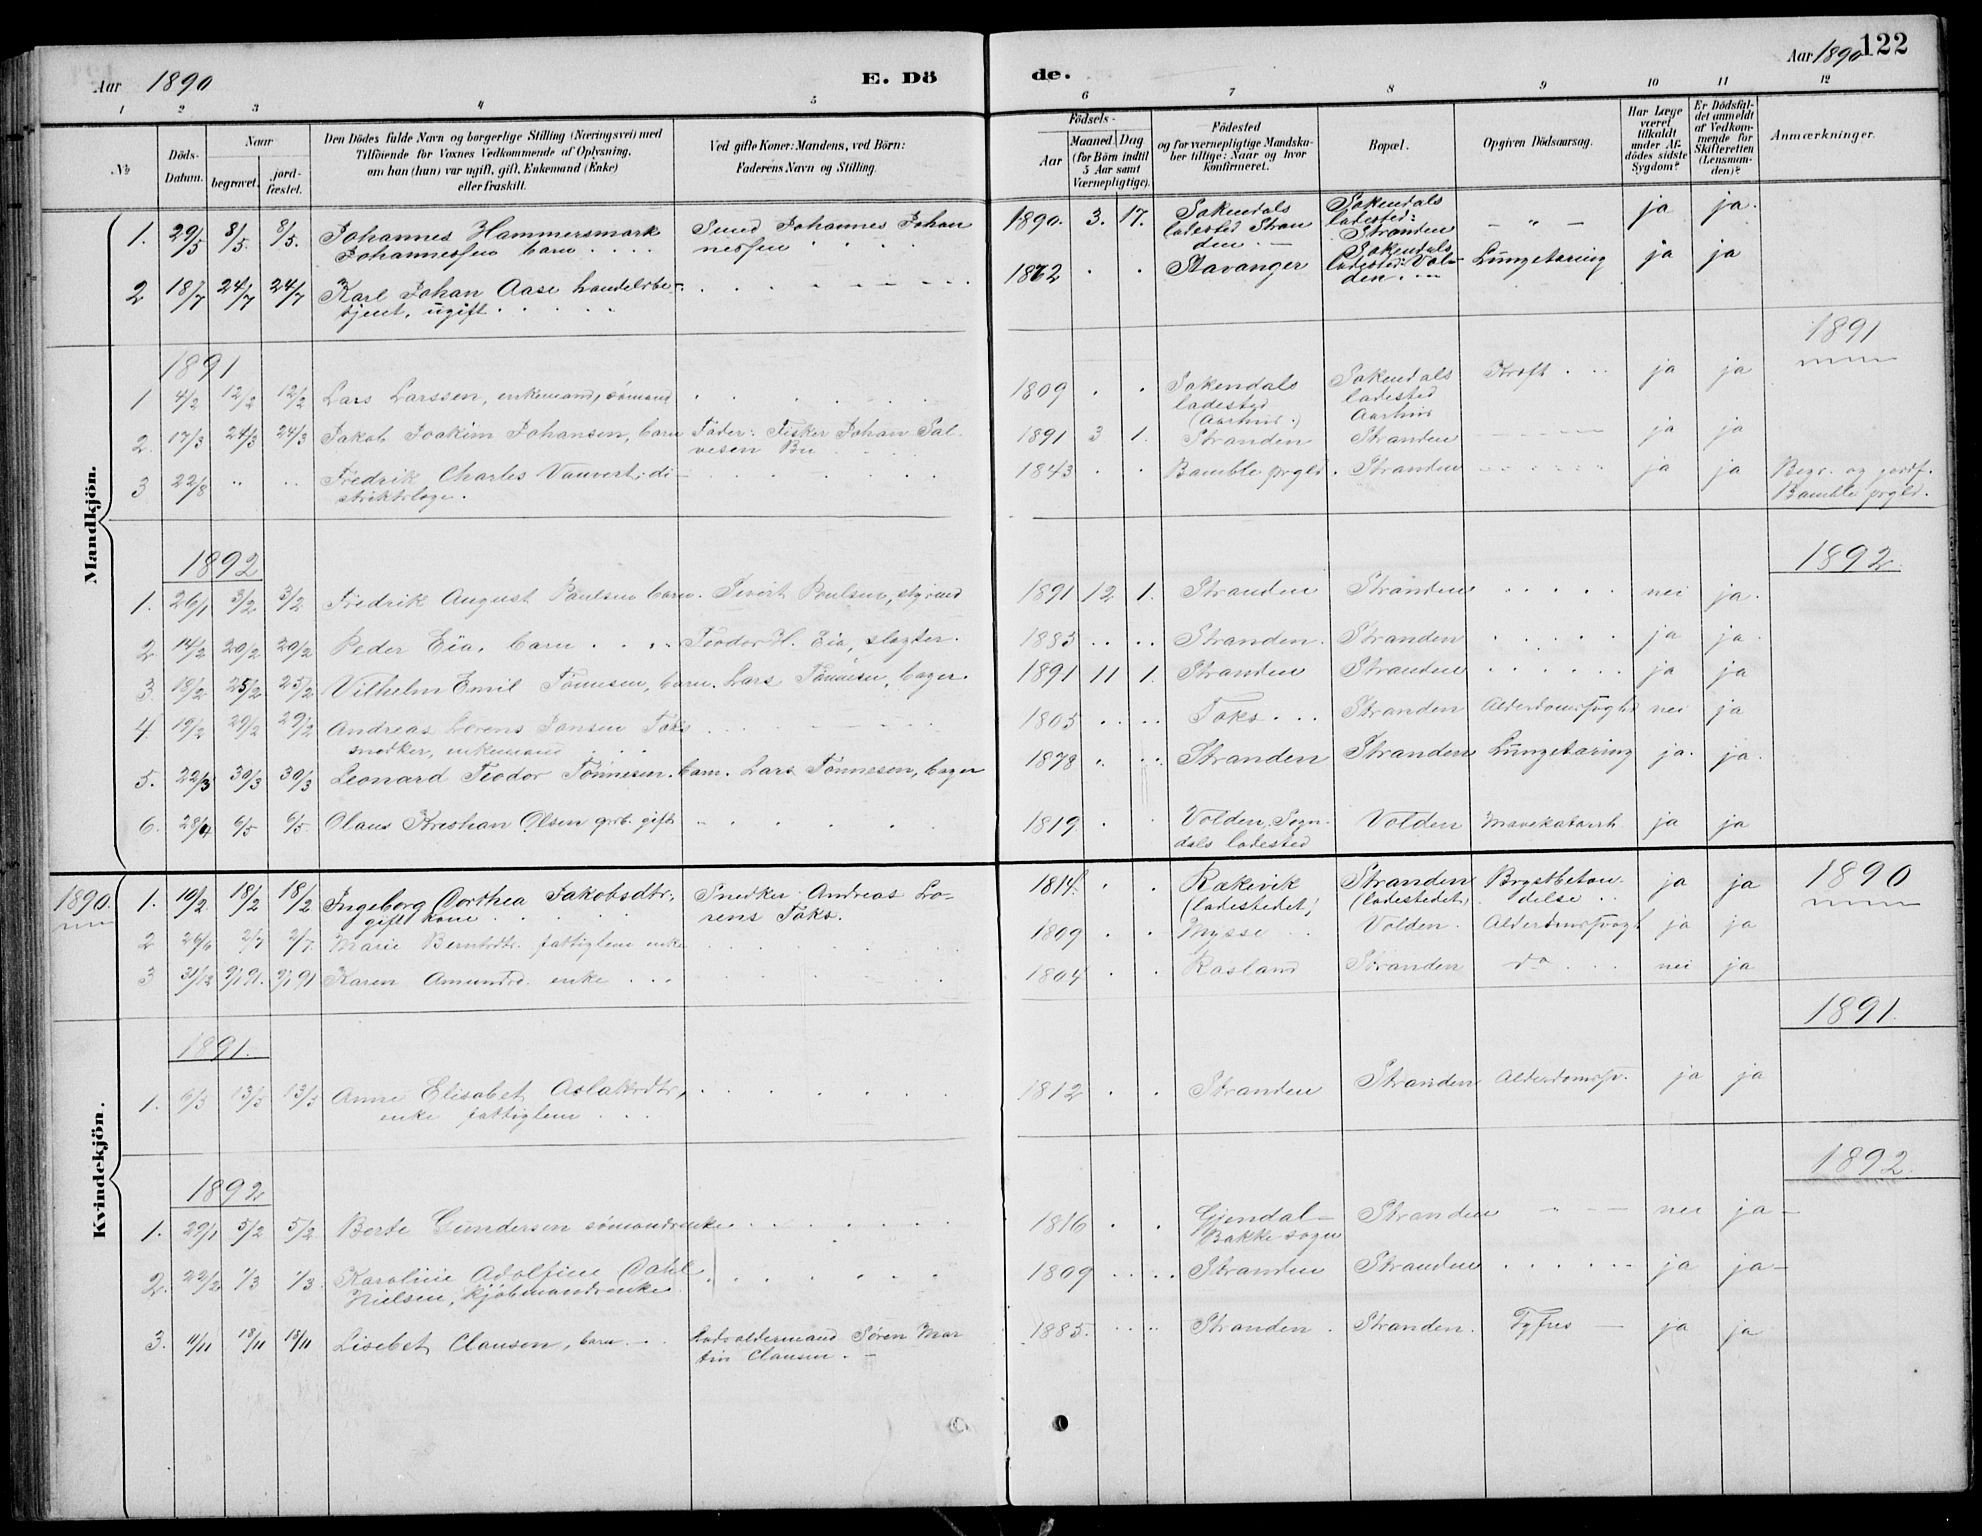 Aar 1890
E. Dö
de.
Aar 1890
122
1 2 3 4 5 6 7 8 9 10 11 12
№
Döds-
Datum.
Naar
begravet.
jord-
fæstet.
Den Dödes fulde Navn og borgerlige Stilling (Næringsvei) med
Tilföiende for Voxnes Vedkommende af Oplysning,
om han (hun) var ugift, gift, Enkemand (Enke)
eller fraskilt.
Ved gifte Koner: Mandens, ved Börn:
Faderens Navn og Stilling.
Födsels-
Aar
Maaned. Dag
(for Börn indtil
5 Aar samt
Værnepligtige).
Födested
og for værnepligtige Mandska-
ber tillige: Naar og hvor
konfirmeret.
Bopæl.
Opgiven Dödsaarsag.
Har Læge
været
tilkaldt
under Af-
dödes sidste
Sygdom?
Er Dödsfal-
det anmeldt
af Vedkom-
mende for
Skifteretten
(Lensman-
den)?
Anmærkninger.
Mandkjön.
1. 29/5 8/5 8/5. Johannes Hammersmark Svend Johannes Johan 1890. 3. 17. Sokendals Sokendals — " — ja ja.
Johannessen barn nessen ladested Stran ladested:
den Stranden
2 18/7 24/7 24/7 Karl Johan Aase handelsbe- 1872 Stavanger Sokendals Lungetæring ja ja
tjent, ugift ladested: Vol-
den
1891
1891
1 4/2 12/2 12/2 Lars Larssen, enkemand, sømand 1809 Sokendals Sokendals Kræft ja ja
ladested ladested
(Aarhus.) Aarhus
2. 17/3 24/3 24/3 Jakob Joakim Johansen, barn Fader: Fisker Johan Sal- 1891 3 1. Stranden Stranden ja ja
vesen Bu
3 22/8 " " Fredrik Charles Vauvert, di- 1843 Bamble prgld. Stranden ja ja Begr. og jordf.
striktslæge. Bamble prgld.
1892
1892
1. 26/1 3/2 3/2 Fredrik August Paulsen barn. Sivert Paulsen, styrmd 1891 12 1. Stranden Stranden nei ja.
2. 14/2 20/2 20/2 Peder Eia, barn Teodor H. Eia, slagter. 1885 Stranden. Stranden ja ja.
3. 19/2 25/2 25/2 Vilhelm Emil Tønnesen, barn. Lars Tønnesen, bager. 1891 11 1. Stranden Stranden ja ja
4. 19/2 29/2 29/2 Andreas Lorens Jansen Foks 1805 Foks Stranden Alderdomssvaghd nei ja
snedker, enkemand
5. 22/3 30/3 30/3 Leonard Teodor Tønnesen. barn. Lars Tønnesen, bager 1878 Stranden Stranden Lungetæring ja. ja.
6. 28/4 6/5 6/5 Olaus Kristian Olsen arb. gift 1819 Volden, Sogn- Volden Mavekatarrh ja ja
dals ladested
Kvindekjön.
1890.
1890
1. 10/2 18/2 18/2 Ingeborg Dorthea Jakobsdtr, Snedker Andreas Lo- 1814. Rækevik Stranden Brystbetæn- ja ja
gift kone rens Foks. (ladestedet) (ladestedet) delse
2 26/6 2/7 2/7 Marie Berntsdtr. fattiglem enke 1809 Mysse Volden. Alderdomssvagh ja ja
3 31/12 9/1 91. 9/1 91 Karen Amundsd. enke 1804 Rosland Stranden do nei ja
1891.
1891.
1. 6/5 13/5 13/5 Anne Elisabet Aslaksdtr, 1812 Stranden Stranden Alderdomssv. ja ja
enke fattiglem
1892
1892.
1. 29/1 5/2 5/2 Berte Gundersen sømandsenke 1816 Gjendal— Stranden nei ja
Bakke sogn
2. 22/2 1/3 1/3. Karoline Adolfine Dahl 1809 Stranden Stranden ja ja
Nielsen, kjøbmandsenke
3. 11/11 18/11 18/11 Lisebet Clausen, barn Lodsoldermand Søren Mar 1885. Stranden Stranden. Tyfus — ja ja
tin Clausen.